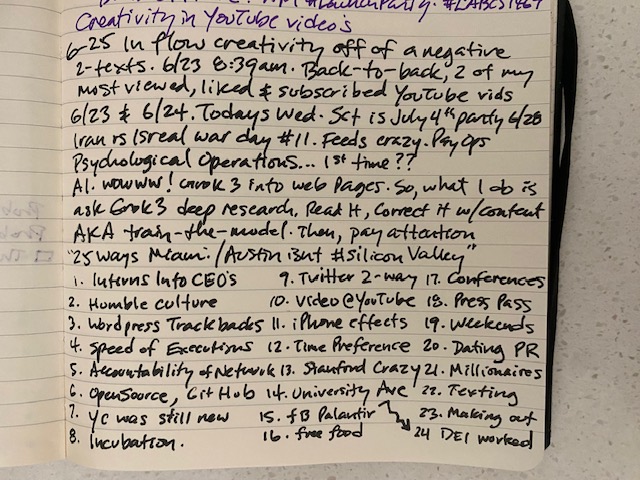 Party. #LABCS1867
Creativity in YouTube video's
6-25 In flow creativity off of a negative
2-texts. 6/23 8:39am. Back-to-back, 2 of my
most viewed, liked & subscribed YouTube vids
6/23 & 6/24. Todays Wed. Sct is July 4th party 6/28
Iran vs Isreal war day #11. Feeds crazy. PsyOps
Psychological Operations... 1st time??
AI. wowww! Grok 3 into web Pages. So, what I do is
ask Grok3 deep research, Read It, Correct it w/content
AKA train-the-model. Then, pay attention
"25 ways Miami/Austin isnt #Silicon Valley"
1. Interns Into CEO's 9. Twitter 2-way 17. Conferences
2. Humble culture 10. Video@YouTube 18. Press Pass
3. Wordpress Trackbacks 11. iPhone effects 19. Weekends
4. Speed of Executions 12. Time Preference 20. Dating PR
5. Accountability of Network 13. Stanford Crazy 21. Millionaires
6. OpenSource, Git Hub 14. University Ave 22. Texting
7. YC was still new 15. FB Palantir 23. Making out
8. Incubation. 16. free food 24 DEI worked